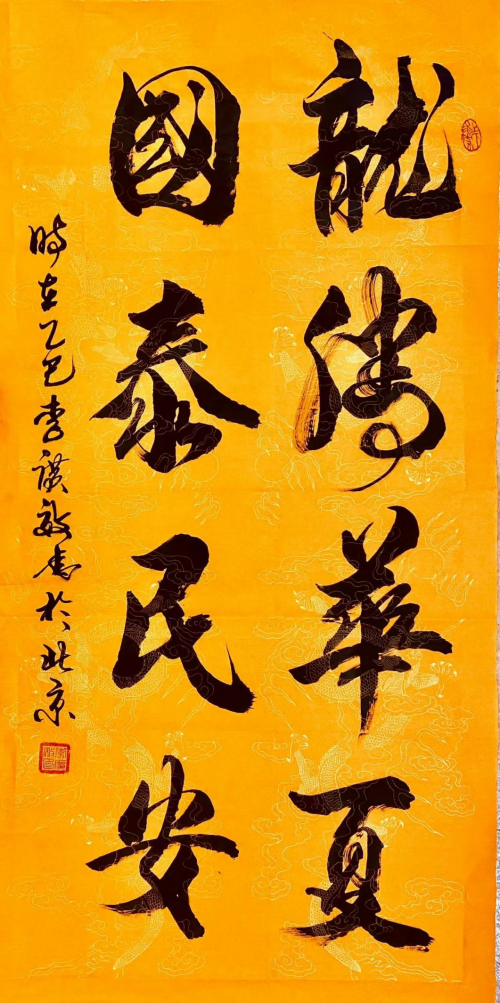 龍騰華夏
國泰民安
時在乙巳李敬書於北京